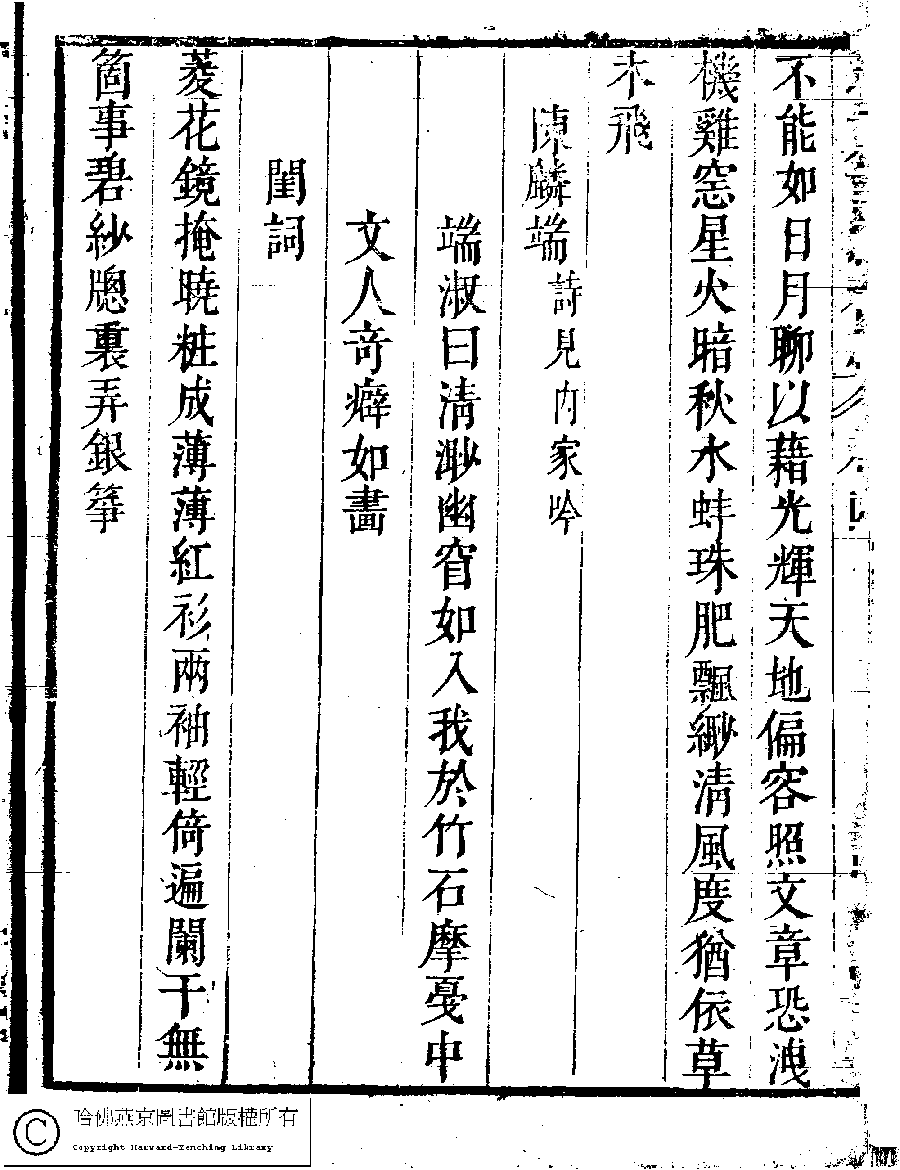 不能如日月聊以藉光輝天地偏容照文章恐洩
機雞窓星火暗秋水蚌珠肥飄緲清風度猶依草
木飛
陳麟端詩見内家吟
端淑曰清渺幽窅如入我於竹石摩戞中
文人奇癖如畵
閨詞
菱花鏡掩曉粧成薄薄紅衫兩袖輕倚遍闌干無
箇事碧紗牕裏弄銀箏
哈佛燕京圖書館版權所有
Copyright Harvard-Yenching Library